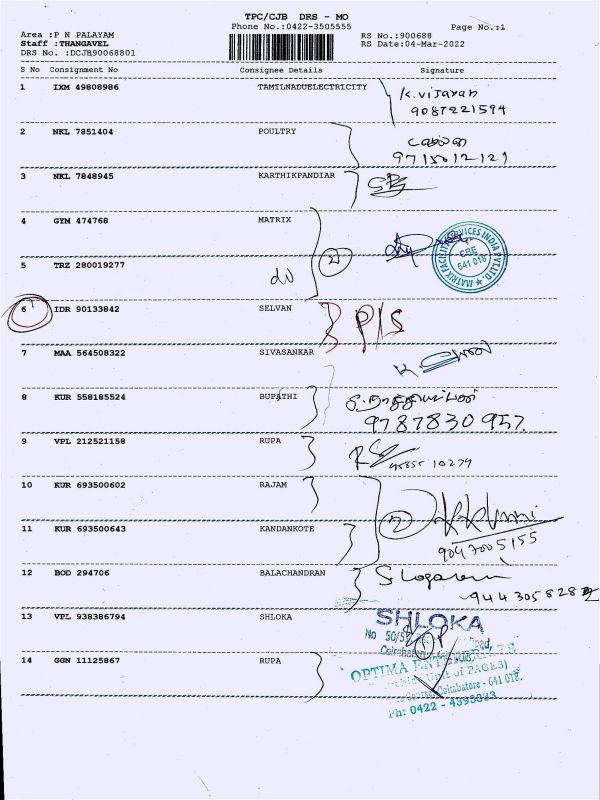 TPC/CJB DRS - MO
Phone No.:0422-3505555
Page No.:1
Area :P N PALAYAM
Staff :THANGAVEL
DRS No. :DCJB90068801
RS No.:900688
RS Date:04-Mar-2022
S No Consignment No Consignee Details Signature
1 IXM 49808986 TAMILNADUELECTRICITY K.Vijayan
9087221594
2 NKL 7851404 POULTRY
9715012121
3 NKL 7848945 KARTHIKPANDIAR
4 GYM 474768 MATRIX
MATRIX FACILITY SERVICES INDIA PVT.LTD.
CBE
641 018
5 TRZ 280019277
6 IDR 90133842 SELVAN P/S
7 MAA 564508322 SIVASANKAR
8 KUR 558185524 BUPATHI
9787830957
9 VPL 212521158 RUPA
10 KUR 693500602 RAJAM
11 KUR 693500643 KANDANKOTE
9047005155
12 BOD 294706 BALACHANDRAN
13 VPL 938386794 SHLOKA SHLOKA
No 50/5 Road,
Coimbatore
14 GGN 11125867 RUPA OPTIMA ENTERPRISES
of PAGE3)
Coimbatore - 641 018.
Ph: 0422 - 4393333